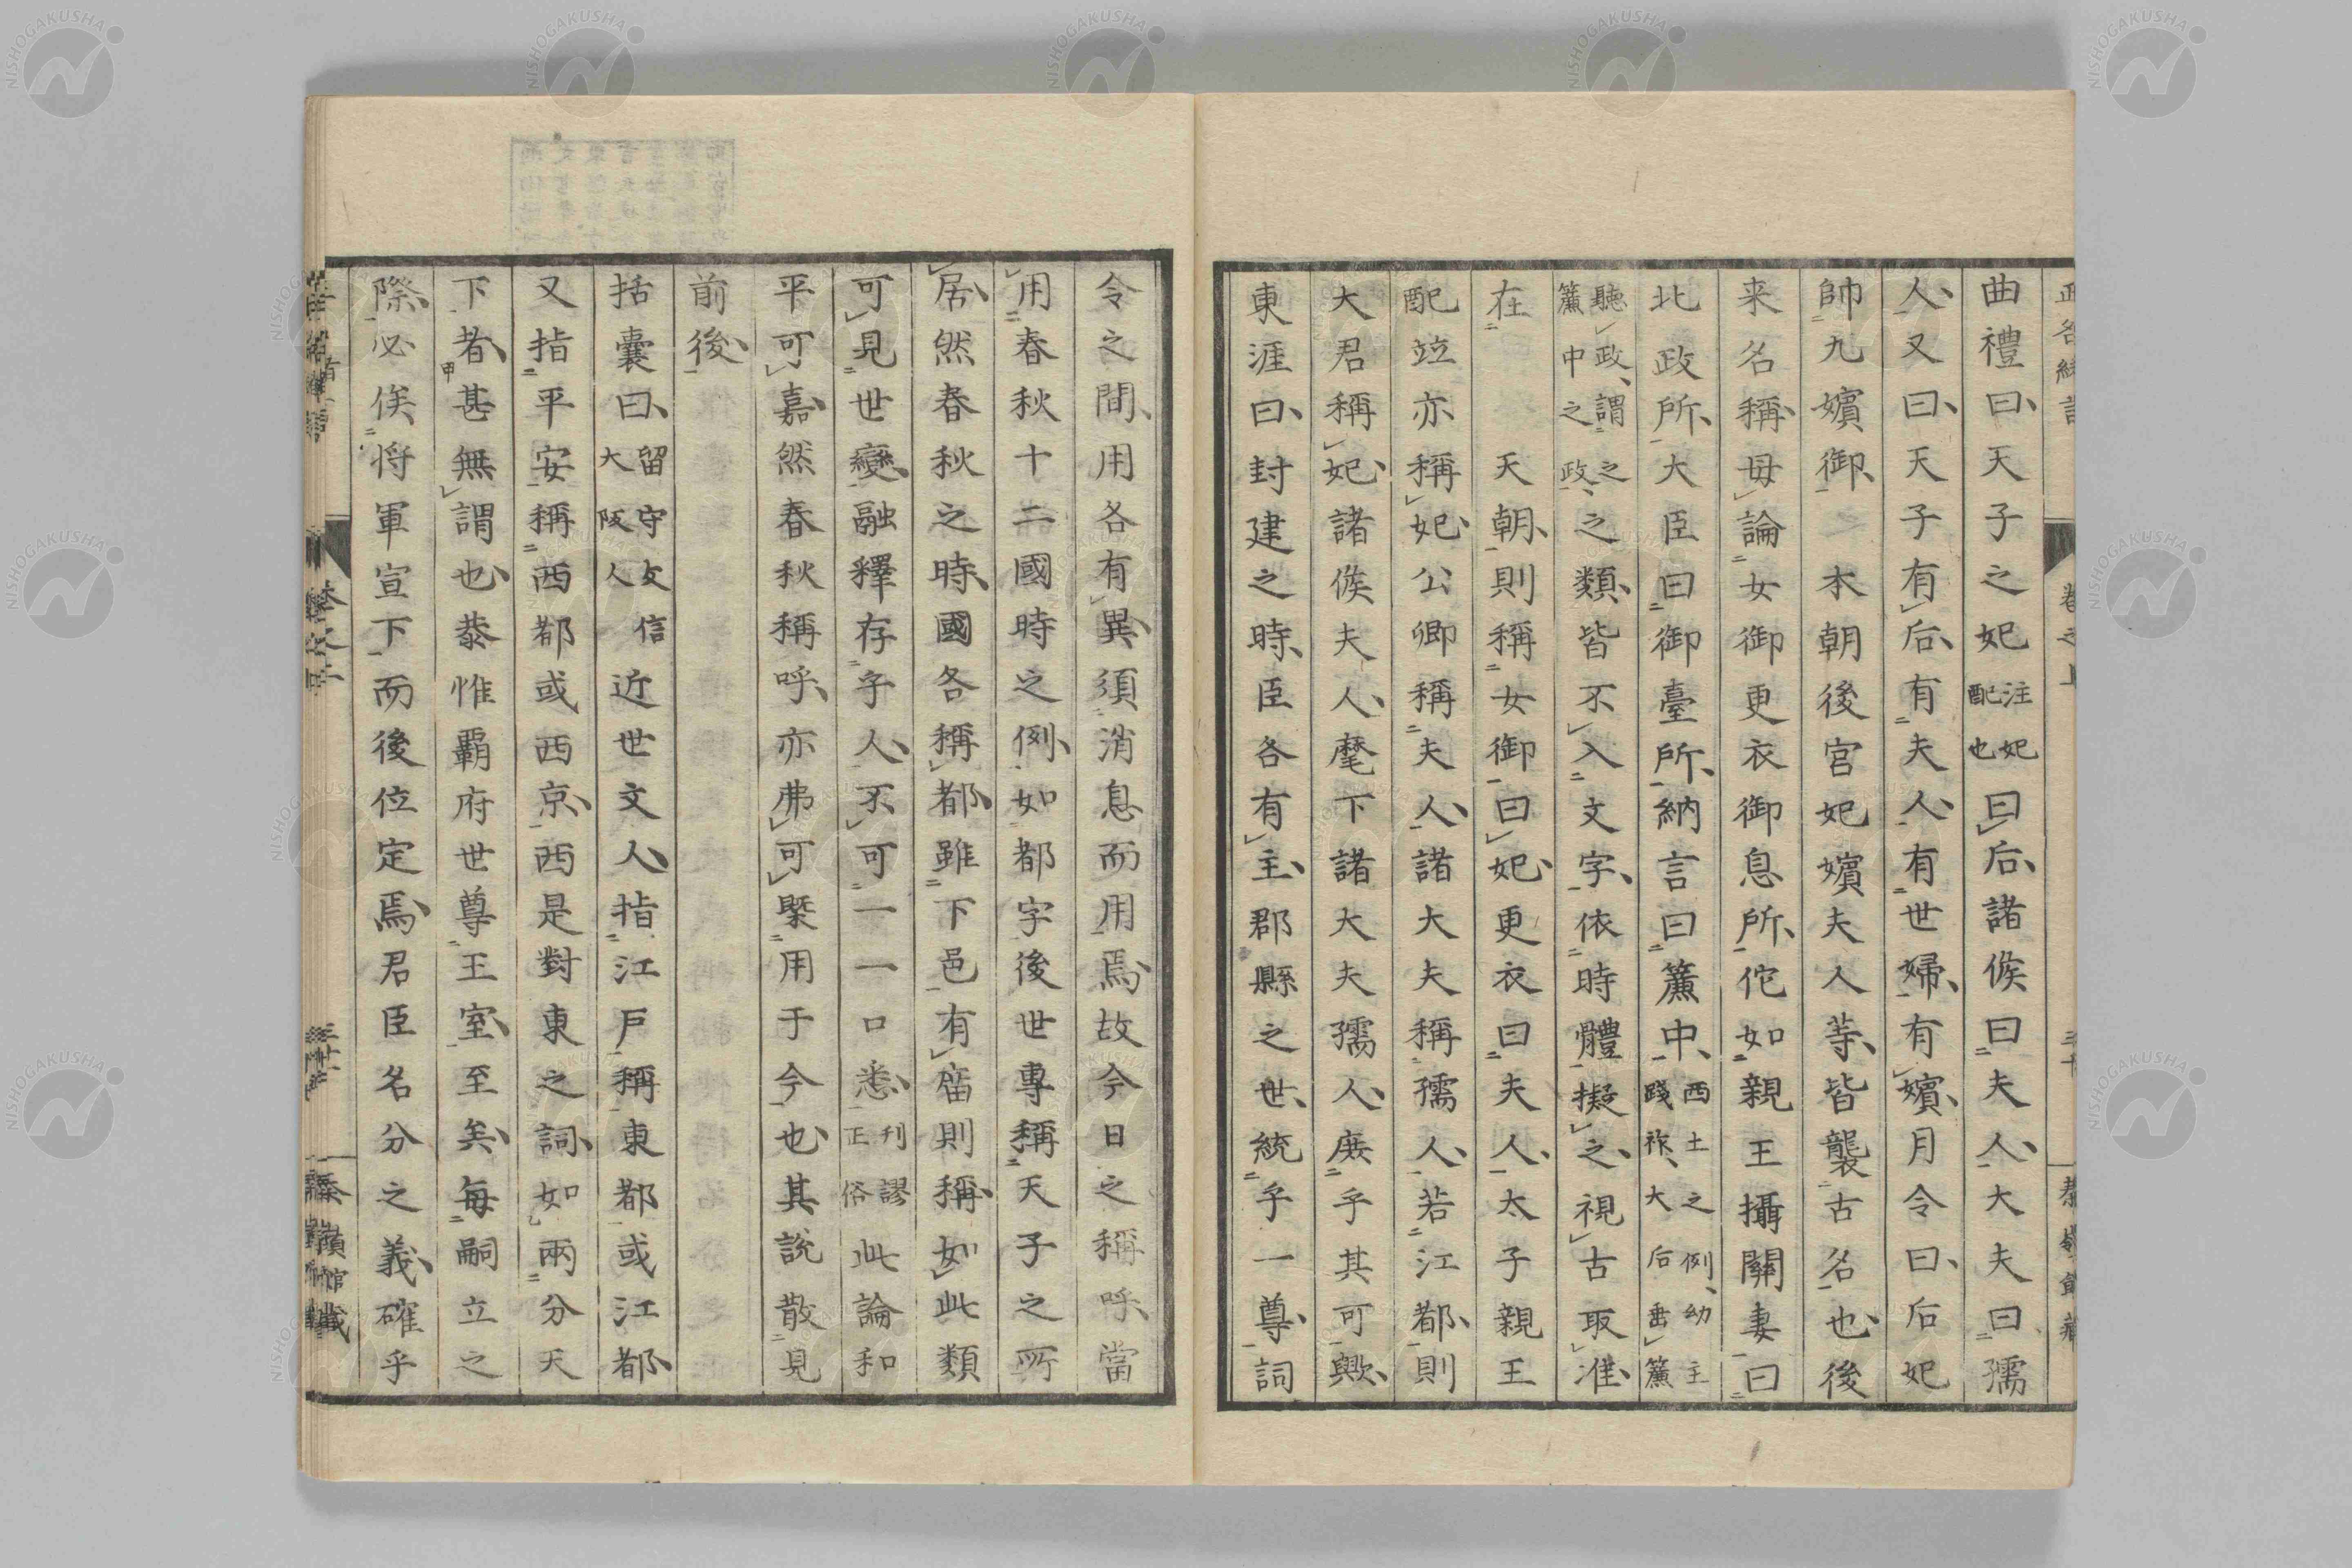 曲禮曰天子之妃注妃配也曰后諸侯曰夫人大夫曰孺
人又曰天子有后有夫人有世婦有嬪月令曰后妃
帥九嬪御 本朝後宮妃嬪夫人等皆襲古名也後
来名稱毋論女御更衣御息所佗如親王攝關妻曰
北政所大臣曰御臺所納言曰簾中西土之例幼主踐祚大后垂簾
聽政謂之簾中之政之類皆不入文字依時體擬之視古取准
在 天朝則稱女御曰妃更衣曰夫人太子親王
配竝亦稱妃公卿稱夫人諸大夫稱孺人若江都則
大君稱妃諸侯夫人麾下諸大夫孺人庶乎其可歟
東涯曰封建之時臣各有主郡縣之世統乎一尊詞
令之間用各有異須消息而用焉故今日之稱呼當
用春秋十二國時之例如都字後世專稱天子之所
居然春秋之時國各稱都雖下邑有廟則稱如此類
可見世變融釋存乎人不可一一口悉刊謬正俗此論和
平可嘉然春秋稱呼亦弗可槩用于今也其說散見
前後
括囊曰留守友信大阪人近世文人指江戶稱東都或江都
又指平安稱西都或西京西是對東之詞如兩分天
下者甚無謂也恭惟霸府世尊王室至矣每嗣立之
際必俟将軍宣下而後位定焉君臣名分之義確乎